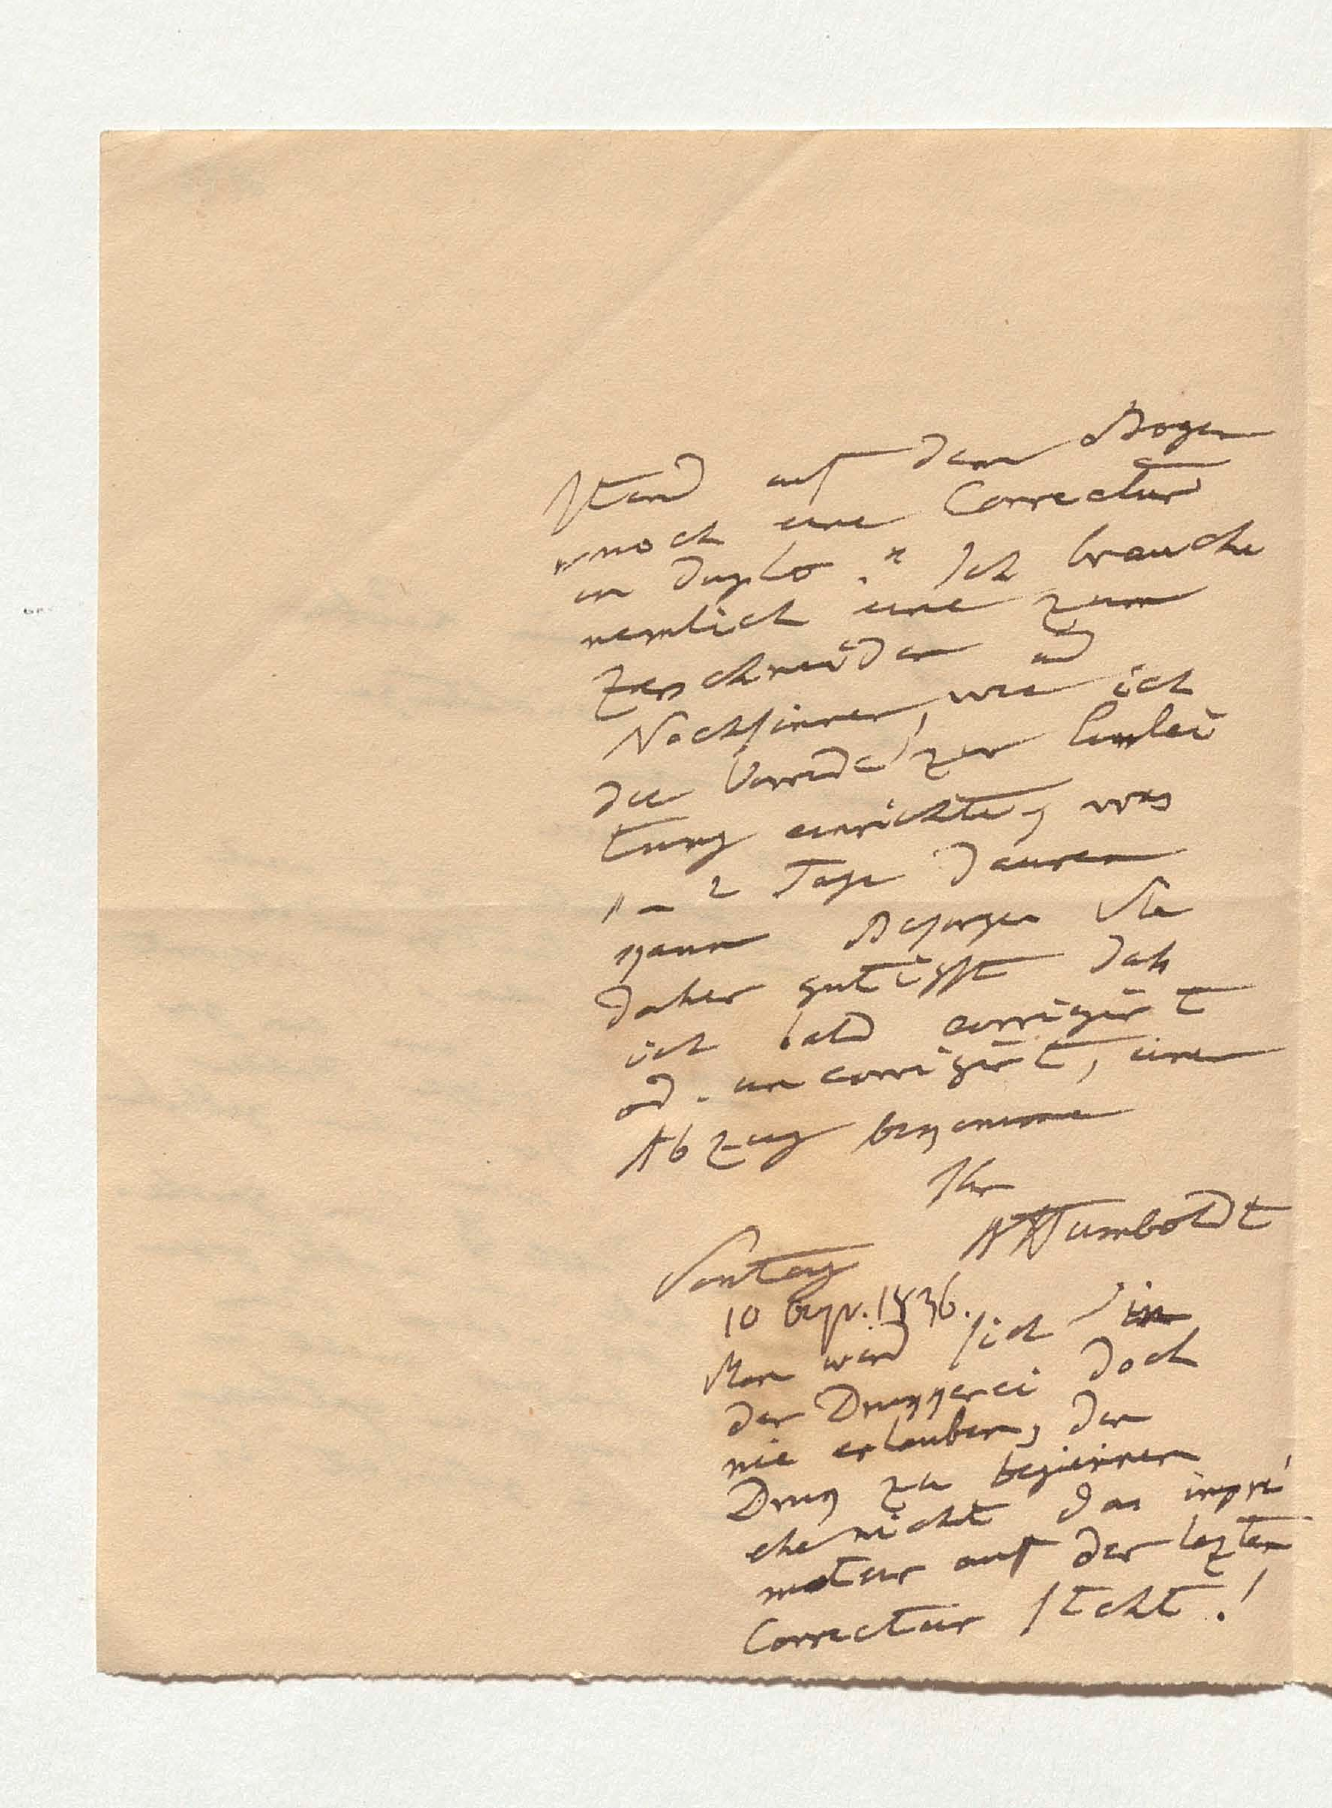 stand auf dem Bogen
noch eine Correctur
in duplo." Ich brauche
nemlich eine zum
Zerschneiden und
Nachsinnen, wie ich
die Vorrede zur Einlei
tung einrichte, was
1–2 Tage dauren
kann Besorgen Sie
daher gütigst daß
ich bald corrigirt
od. uncorrigirt, einen
Abzug bekomme
Ihr
AHumboldt
Sontag
10 1836.
Man wird sich in
der Drukkerei doch
nie erlauben, den
Druk zu beginnen
ehe nicht das impri
matur auf der lezten
Correctur steht!